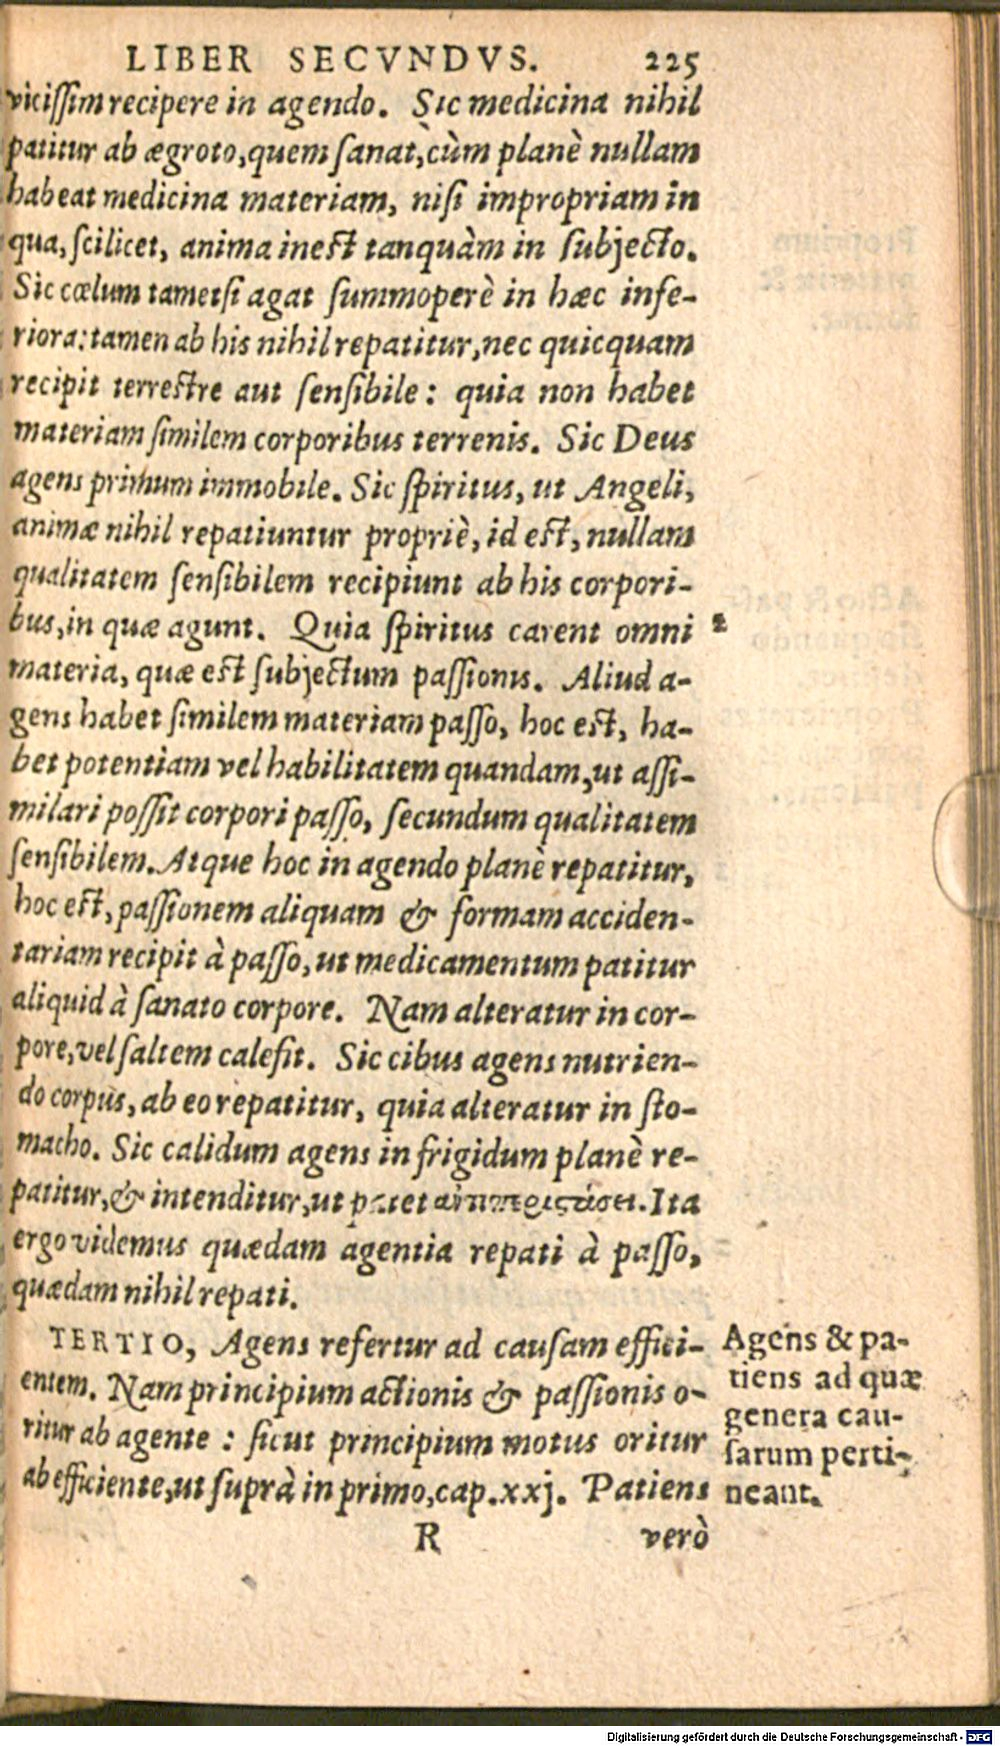 LIBER SECVNDVS. 225
vicissim recipere in agendo. Sic medicina nihil
patitur ab ægroto, quem sanat, cùm planè nullam
habeat medicina materiam, nisi impropriam in
qua, scilicet, anima inest tanquàm in subjecto.
Sic cœlum tametsi agat summoperè in hæc infe-
riora: tamen ab his nihil repatitur, nec quicquam
recipit terrestre aut sensibile: quia non habet
materiam similem corporibus terrenis. Sic Deus
agens primum immobile. Sic spiritus, ut Angeli,
animæ nihil repatiuntur propriè, id est, nullam
qualitatem sensibilem recipiunt ab his corpori-
bus, in quæ agunt. Quia spiritus carent omni
2
materia, quæ est subjectum passionis. Aliud a-
gens habet similem materiam passo, hoc est, ha-
bet potentiam vel habilitatem quandam, ut assi-
milari possit corpori passo, secundum qualitatem
sensibilem. Atque hoc in agendo planè repatitur,
hoc est, passionem aliquam & formam acciden-
tariam recipit à passo, ut medicamentum patitur
aliquid à sanato corpore. Nam alteratur in cor-
pore, vel saltem calefit. Sic cibus agens nutrien-
do corpus, ab eo repatitur, quia alteratur in sto-
macho. Sic calidum agens in frigidum planè re-
patitur, & intenditur, ut patet ἀντιπεριστάσει. Ita
ergo videmus quædam agentia repati à passo,
quædam nihil repati.
TERTIO, Agens refertur ad causam effici-
entem. Nam principium actionis & passionis o-
ritur ab agente: sicut principium motus oritur
ab efficiente, ut suprà in primo, cap. xxj. Patiens
Agens & pa-
tiens ad quæ
genera cau-
sarum perti-
neant.
R verò
Digitalisierung gefördert durch die Deutsche Forschungsgemeinschaft - DFG